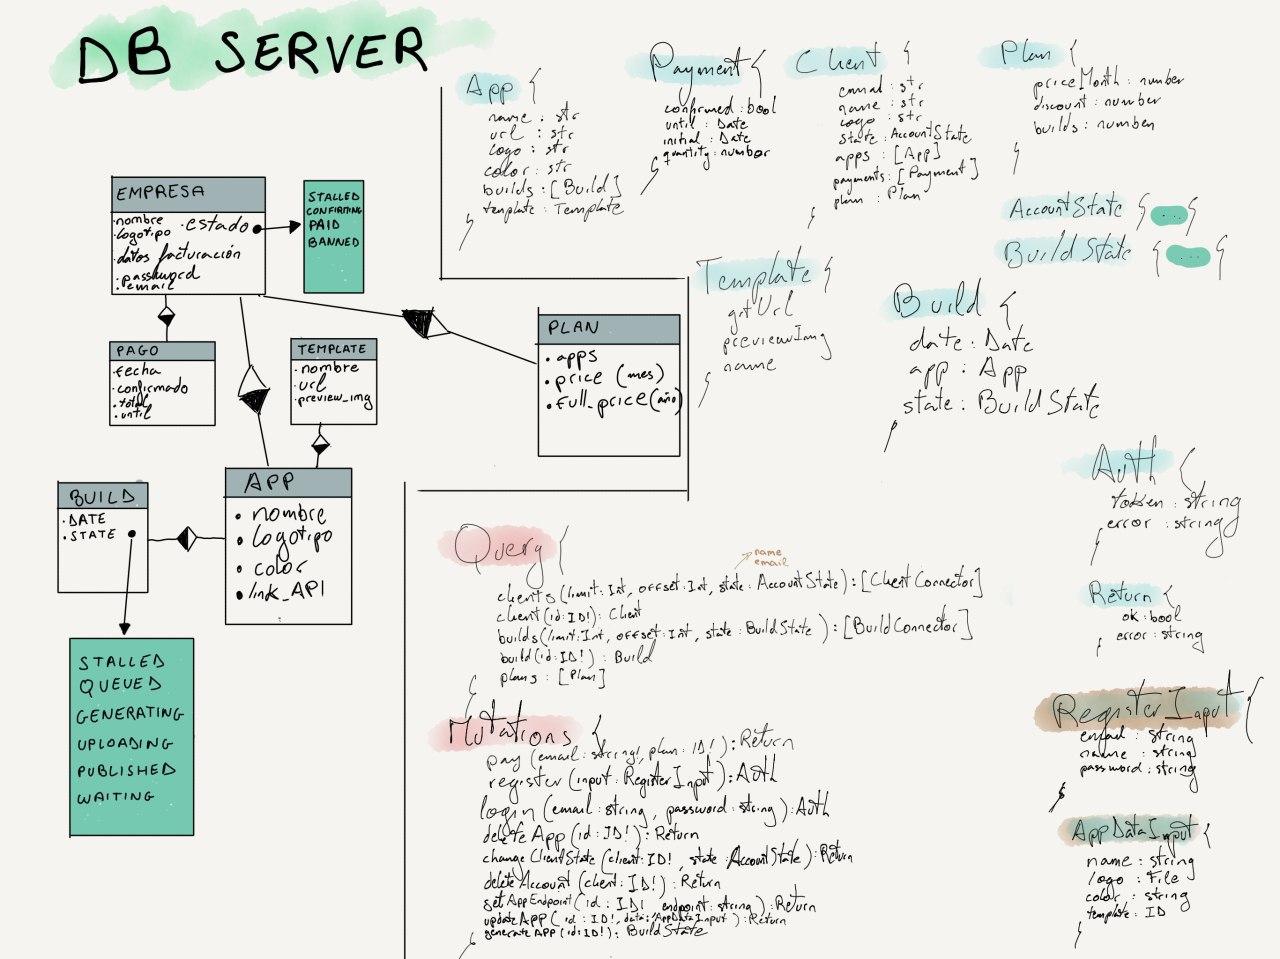 DB SERVER
EMPRESA
·nombre
·logotipo ·estado
·datos facturación
·password
·email
STALLED
CONFIRMING
PAID
BANNED
PAGO
·fecha
·confirmado
·total
·until
TEMPLATE
·nombre
·url
·preview_img
PLAN
• apps
• price (mes)
• full_price (año)
BUILD
·DATE
·STATE
APP
• nombre
• logotipo
• color
• link_API
STALLED
QUEUED
GENERATING
UPLOADING
PUBLISHED
WAITING
App {
name : str
url : str
logo : str
color : str
builds : [Build]
template : Template
}
Payment {
confirmed : bool
until : Date
initial : Date
quantity : number
}
Client {
email : str
name : str
logo : str
state : AccountState
apps : [App]
payments : [Payment]
plan : Plan
}
Plan {
priceMonth : number
discount : number
builds : number
}
AccountState { ... }
BuildState { ... }
Template {
gitUrl
previewImg
name
}
Build {
date : Date
app : App
state : BuildState
}
Auth {
token : string
error : string
}
Return {
ok : bool
error : string
}
RegisterInput {
email : string
name : string
password : string
}
AppDataInput {
name : string
logo : File
color : string
template : ID
}
Query {
name
email
clients (limit : Int, offset : Int, state : AccountState) : [ClientConnector]
client (id : ID!) : Client
builds (limit : Int, offset : Int, state : BuildState) : [BuildConnector]
build (id : ID!) : Build
plans : [Plan]
}
Mutations {
pay (email : string!, plan : ID!) : Return
register (input : RegisterInput) : Auth
login (email : string, password : string) : Auth
deleteApp (id : ID!) : Return
changeClientState (client : ID!, state : AccountState) : Return
deleteAccount (client : ID!) : Return
setAppEndpoint (id : ID!, endpoint : string) : Return
updateAPP (id : ID!, data : AppDataInput) : Return
generateAPP (id : ID!) : BuildState
}